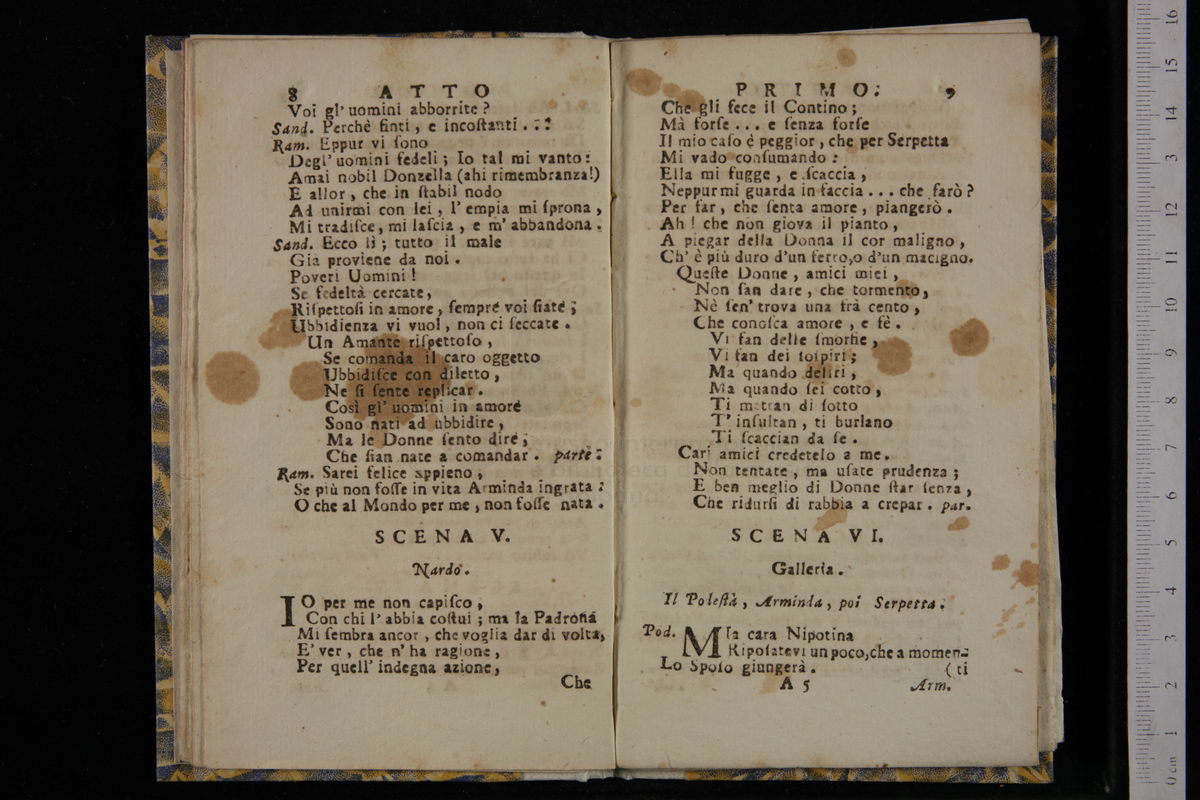 8 ATTO
Voi gl' uomini abborrite?
Sand. Perchè finti, e incoſtanti . . :
Ram. Eppur vi ſono
Degl' uomini fedeli; Io tal mi vanto:
Amai nobil Donzella (ahi rimembranza!)
E allor, che in ſtabil nodo
Ad unirmi con lei, l' empia mi ſprona,
Mi tradiſce, mi laſcia, e m' abbandona.
Sand. Ecco lì; tutto il male
Già proviene da noi.
Poveri Uomini!
Se fedeltà cercate,
Riſpettoſi in amore, ſempré voi ſiaté;
Ubbidienza vi vuol, non ci ſeccate.
Un Amante riſpettoſo,
Se comanda il caro oggetto
Ubbidiſce con diletto,
Ne ſi ſente replicar.
Così gl' uomini in amoré
Sono nati ad ubbidire,
Ma le Donne ſento diré;
Che ſian nate a comandar. parte:
Ram. Sarei felice appieno,
Se più non foſſe in vita Arminda ingrata:
O che al Mondo per me, non foſſe nata.
SCENA V.
Nardo.
IO per me non capiſco,
Con chi l' abbia coſtui; ma la Padroná
Mi ſembra ancor, che voglia dar di volta,
E' ver, che n' ha ragione,
Per quell' indegna azione,
Che
PRIMO. 9
Che gli fece il Contino;
Mà forſe ... e ſenza forſe
Il mio caſo è peggior, che per Serpetta
Mi vado conſumando:
Ella mi fugge, e ſcaccia,
Neppur mi guarda in faccia ... che farò?
Per far, che ſenta amore, piangerò.
Ah! che non giova il pianto,
A piegar della Donna il cor maligno,
Ch' è più duro d'un ferro, o d'un macigno.
Queſte Donne, amici miei,
Non ſan dare, che tormento,
Nè ſen' trova una frà cento,
Che conoſca amore, e fè.
Vi fan delle ſmorfie,
Vi fan dei ſoſpiri;
Ma quando deliri,
Ma quando ſei cotto,
Ti mettan di ſotto
T' inſultan, ti burlano
Ti ſcaccian da ſe.
Cari amici credetelo a me.
Non tentate, ma uſate prudenza;
E ben meglio di Donne ſtar ſenza,
Che ridurſi di rabbia a crepar. par.
SCENA VI.
Galleria.
Il Poleſtà, Arminda, poi Serpetta.
Pod. MIa cara Nipotina
Ripoſatevi un poco, che a momen-
Lo Spoſo giungerà. (ti
A 5 Arm.